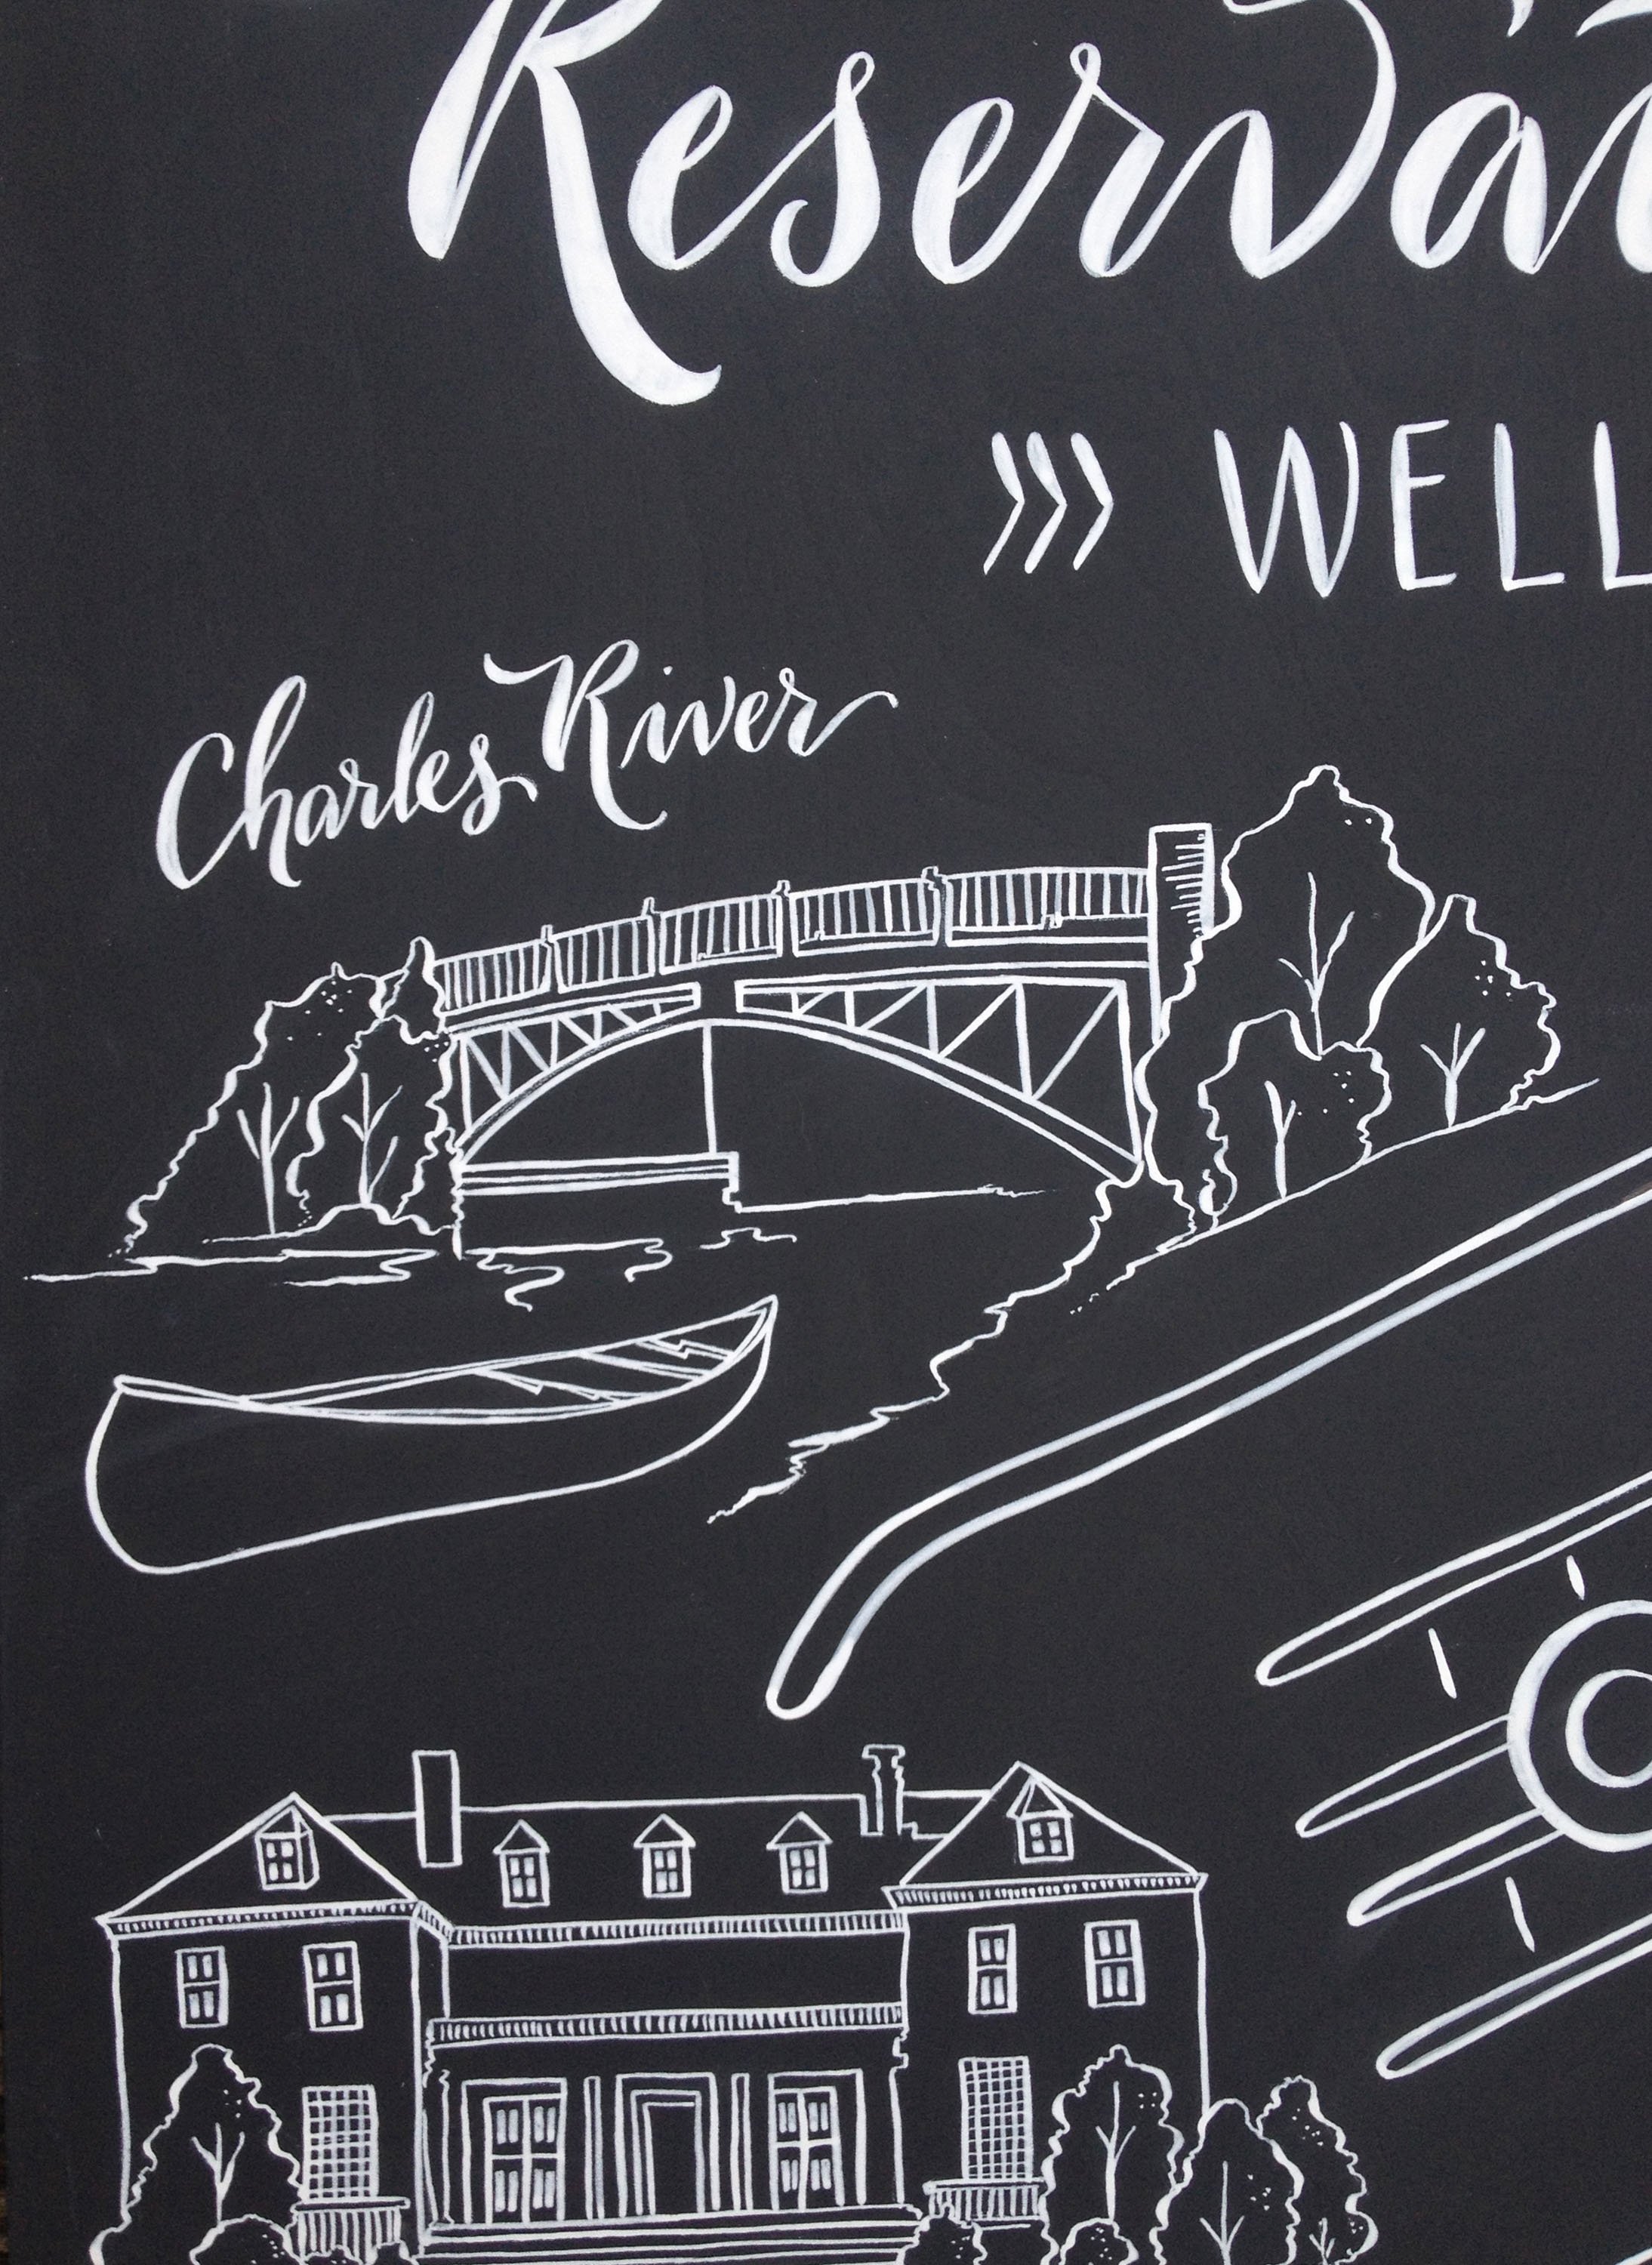 Reservat
››› WELL
Charles River